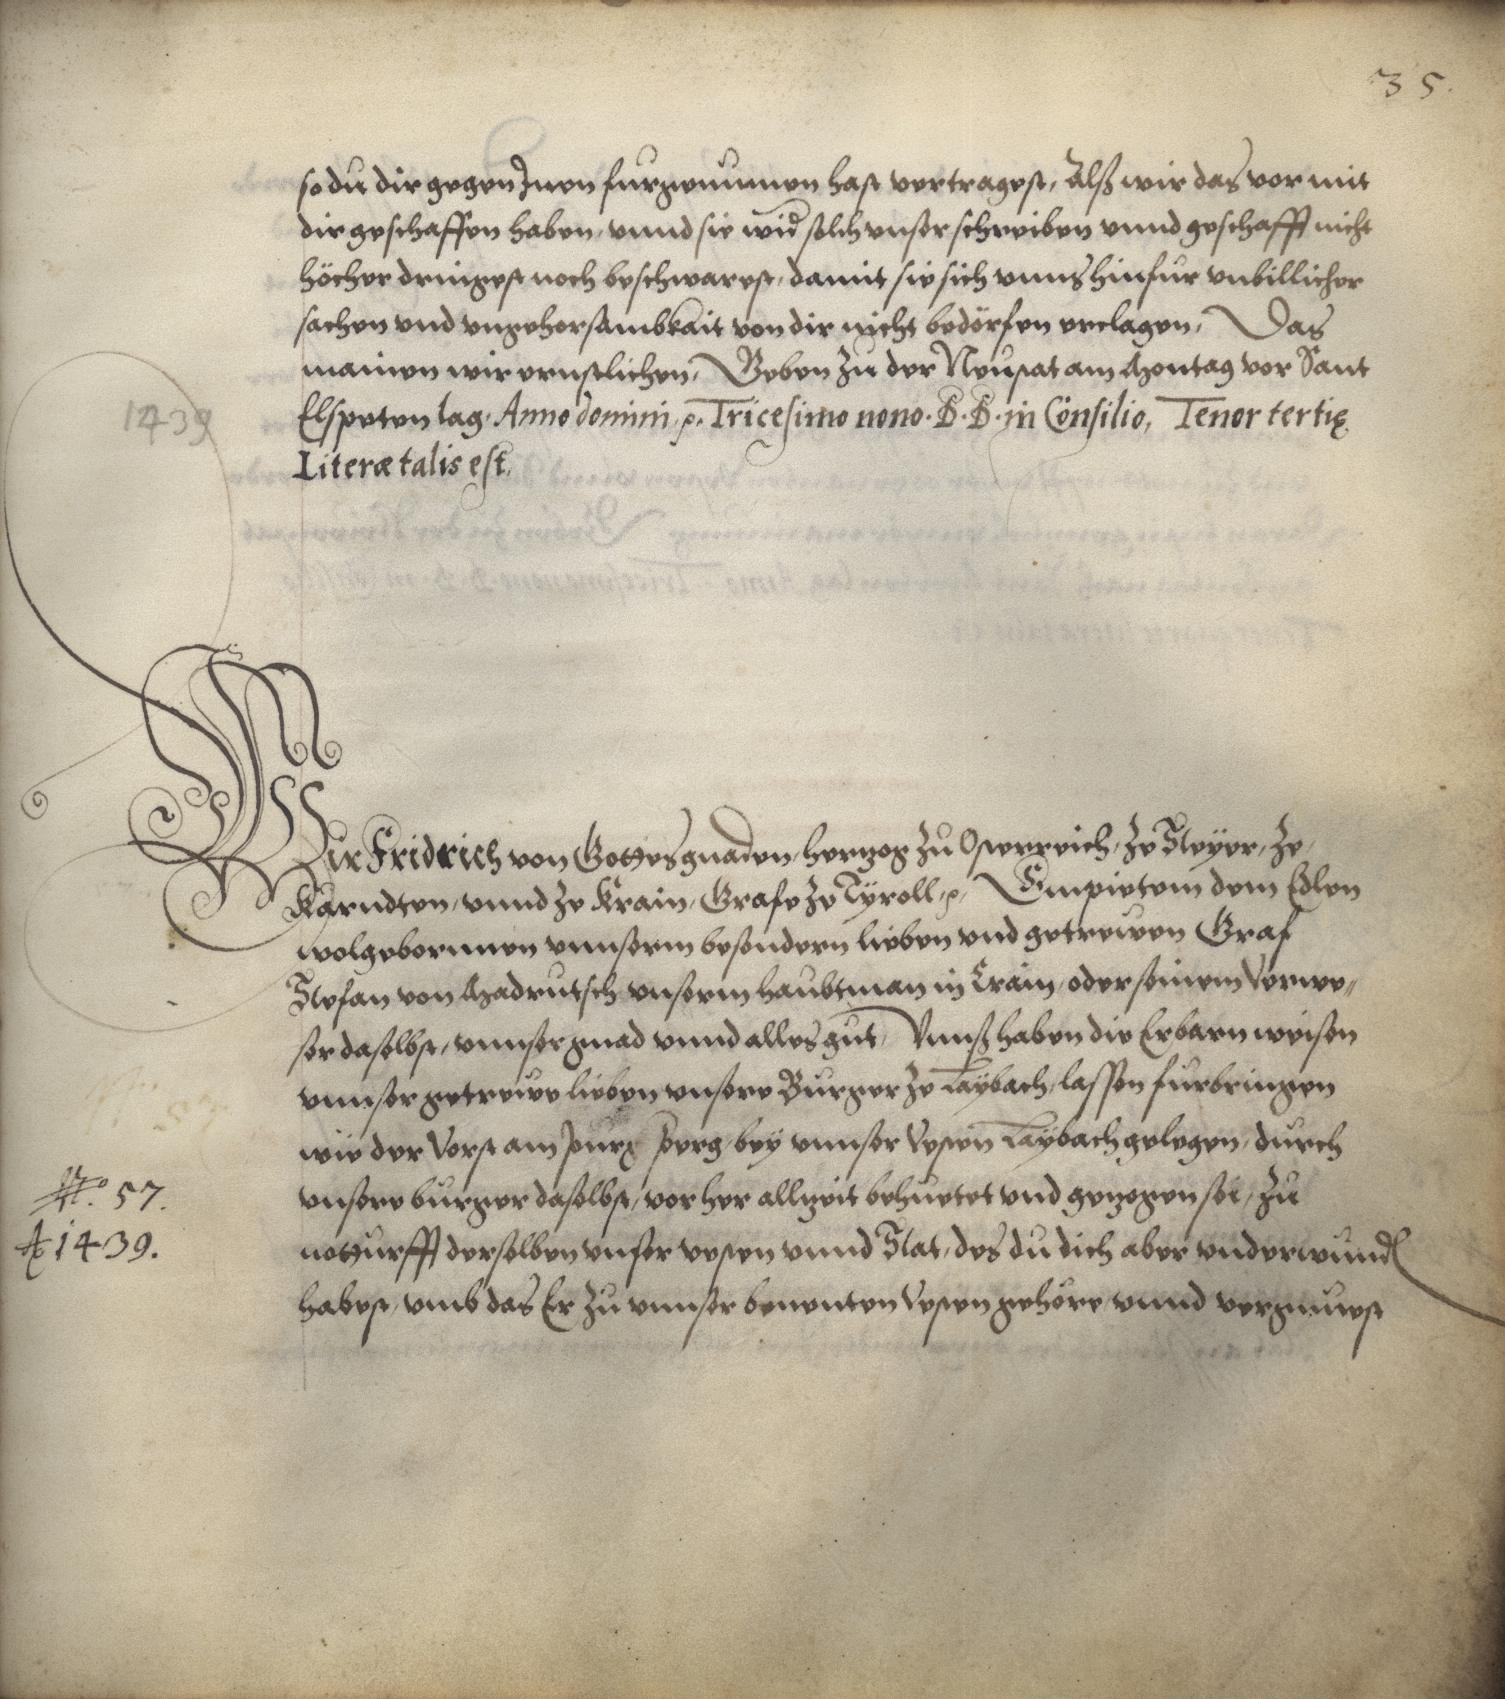 35.
so du dir gegen Inen furgenumen hast vertragest, Alß wir das vor mit
dir geschaffen haben, vnnd sie wid solch vnser schreiben vnnd geschafft nicht
höcher dringest noch beschwarest, damit sie sich vnns hinfur vnbillicher
sachen vnd vngehorsambkait von dir nicht bedörfen erclagen, Das
mainen wir ernstlichen, Geben zu der Neustat am Montag vor Sant
1439
Elspeten tag, Anno domini ꝛc. Tricesimo nono. D. D. in Consilio, Tenor tertiæ
Literæ talis est.
Wir Fridrich von Gottes gnaden, hertzog zu Osterreich, ze Steyer, ze,
Karndten, vnnd ze Krain, Grafe ze Tÿroll, ꝛc, Empietem dem Edlen
wolgebornnen vnnserm besondern lieben vnd getrewen Graf
Stefan von Madrutsch vnserm haubtman in Crain, oder seinem Verwe„
ser daselbst, vnnser gnad vnnd alles gut, Vnnß haben die Erbarn weisen
vnnser getrewe lieben vnsere Burger ze Laÿbach, lassen furbringen
wie der Vorst am perg, beÿ vnnser Vesten Laÿbach gelegen, durch
vnsere burger daselbst, vorher allzeit behuetet vnd gezogen sei, zu
No. 57.
notturfft derselben vnser vesten vnnd Stat, des du dich aber vnderwund
A 1439.
habest, vmb das Er zu vnnser benenten Vesten gehöre, vnnd vermainest